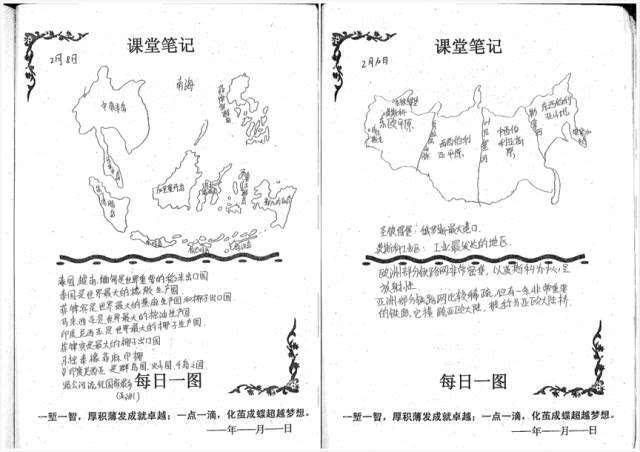 课堂笔记
2月8日
南海
中南半岛
菲律宾群岛
加里曼丹岛
泰国、越南、缅甸是世界重要的稻米出口国
泰国是世界最大的橡胶生产国
菲律宾是世界最大的蕉麻生产国和椰子出口国
马来西亚是世界最大的棕油生产国
印度尼西亚是世界最大的椰子生产国
菲律宾是最大的椰子出口国
印度尼西亚是群岛国,火山国,千岛之国
每日一图
一堑一智,厚积薄发成就卓越;一点一滴,化茧成蝶超越梦想。
——年—月—日
课堂笔记
2月10日
圣彼得堡
莫斯科
东欧平原
西西伯利亚平原
叶尼塞河
中西伯利亚高原
勒拿河
东西伯利亚山地
圣彼得堡:俄罗斯最大港口.
莫斯科工业区:工业最发达的地区.
欧洲部分铁路网非常密集,以莫斯科为中心呈
放射性
亚洲部分铁路网比较稀疏,但有一条非常重要
的铁路,它横跨亚欧大陆,被称为亚欧大陆桥.
每日一图
一堑一智,厚积薄发成就卓越;一点一滴,化茧成蝶超越梦想。
——年—月—日